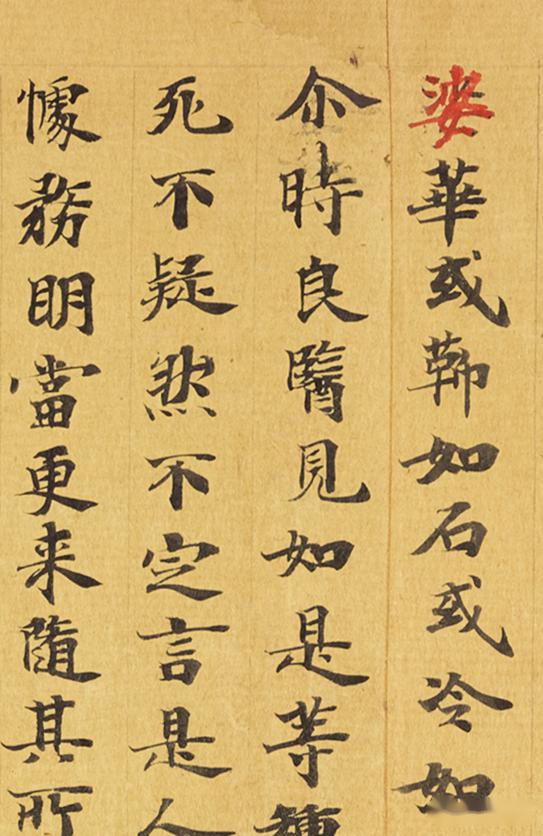 婆華或如石或冷如
尒時良醫見如是等種
死不疑然不定言是人
懅務明當更来隨其所